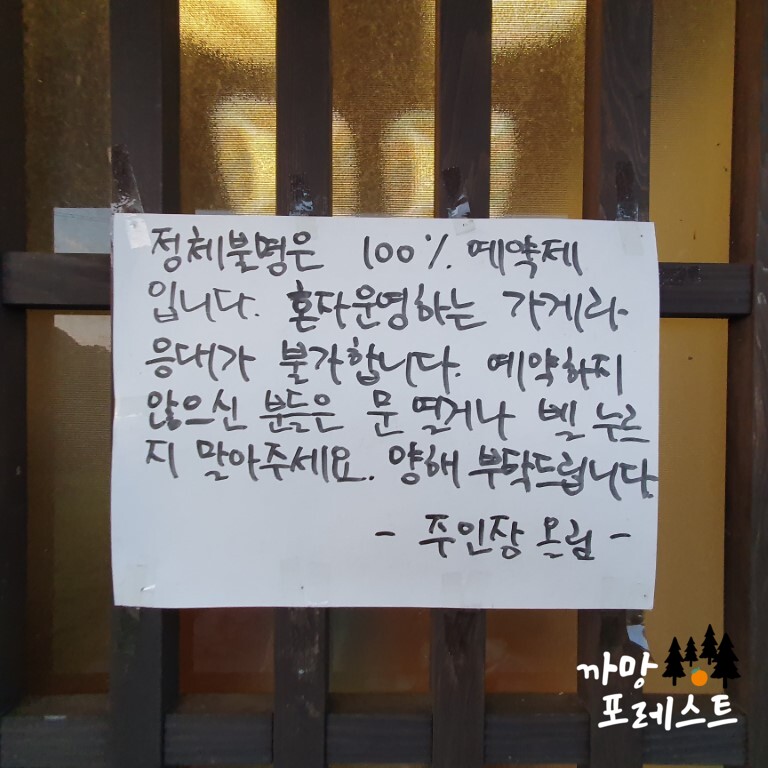 정체불명은 100% 예약제
입니다. 혼자운영하는 가게라
응대가 불가합니다. 예약하지
않으신 분들은 문 열거나 벨 누르
지 말아주세요. 양해 부탁드립니다
- 주인장 올림 -
까망
포레스트